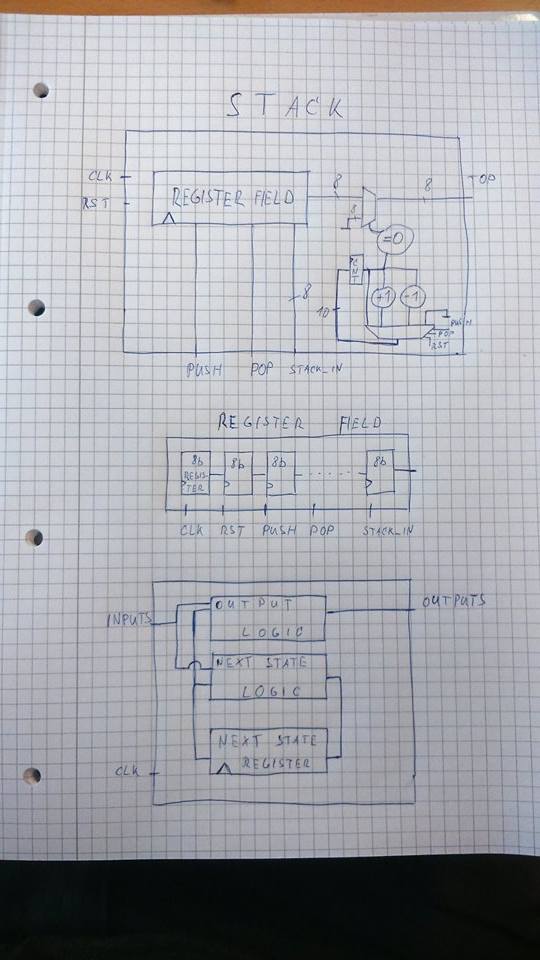 STACK
CLK
RST
REGISTER FIELD
8
8
TOP
8
=0
CNT
+1
-1
8
10
PUSH
POP
RST
PUSH
POP
STACK_IN
REGISTER FIELD
8b
REGIS-
TER
8b
8b
8b
CLK
RST
PUSH
POP
STACK_IN
INPUTS
OUTPUT
LOGIC
OUTPUTS
NEXT STATE
LOGIC
NEXT STATE
REGISTER
CLK